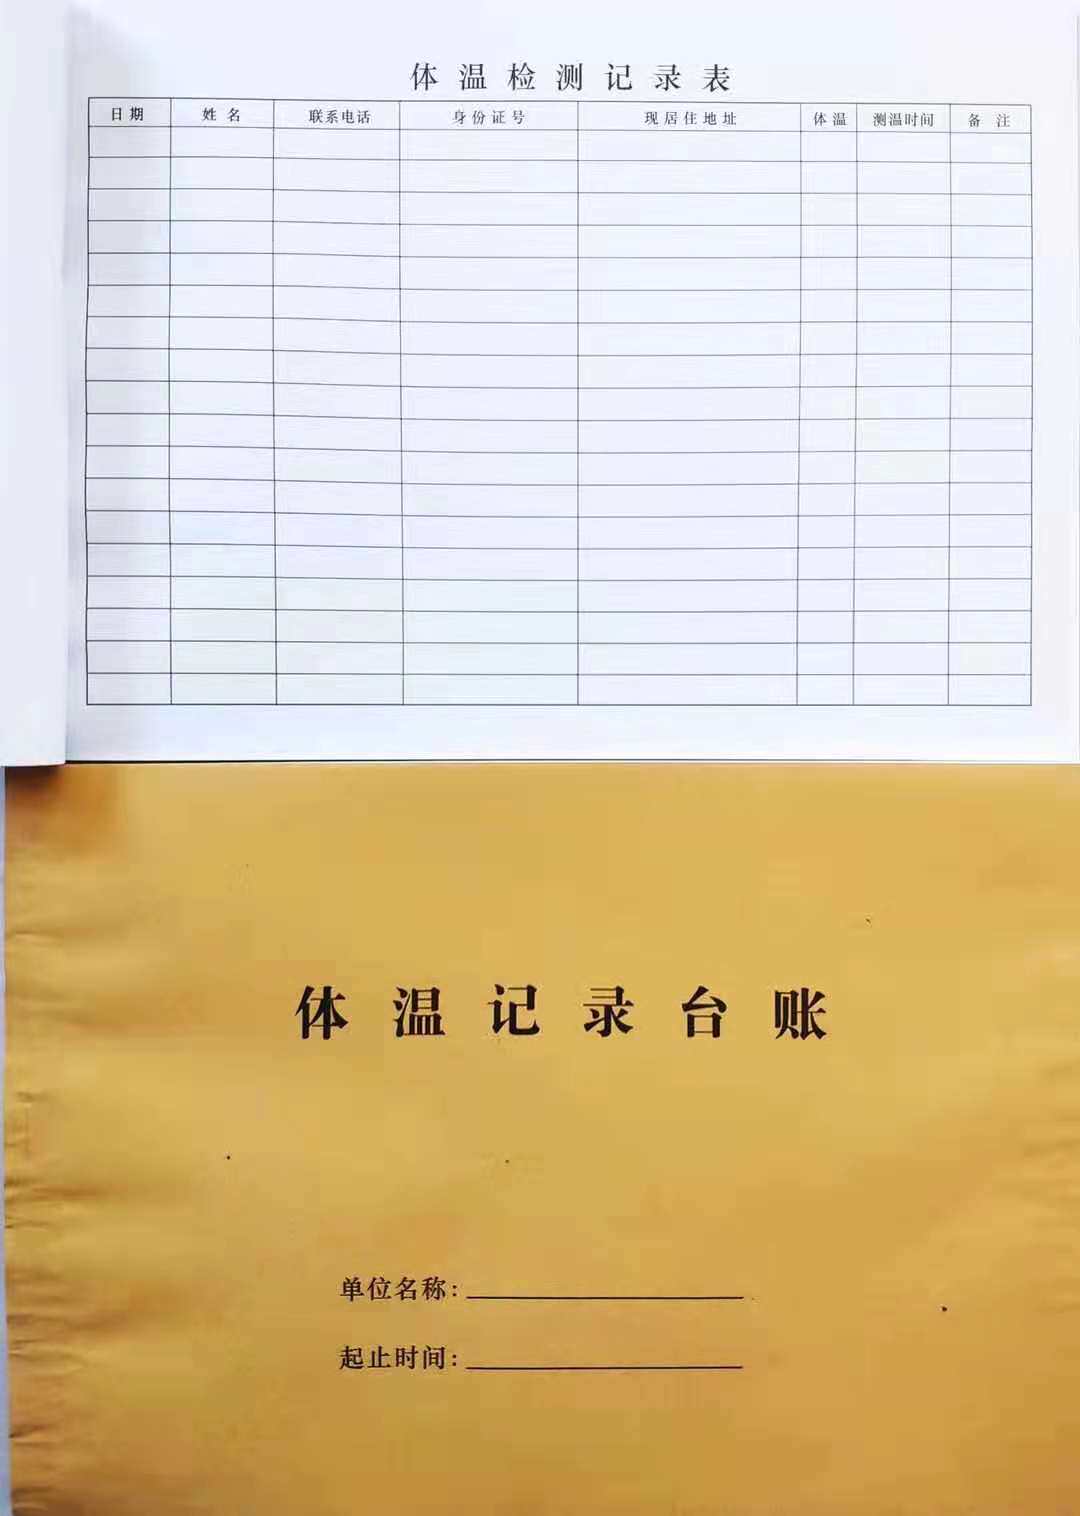 体温检测记录表
日期 姓名 联系电话 身份证号 现居住地址 体温 测温时间 备注
体温记录台账
单位名称:
起止时间: